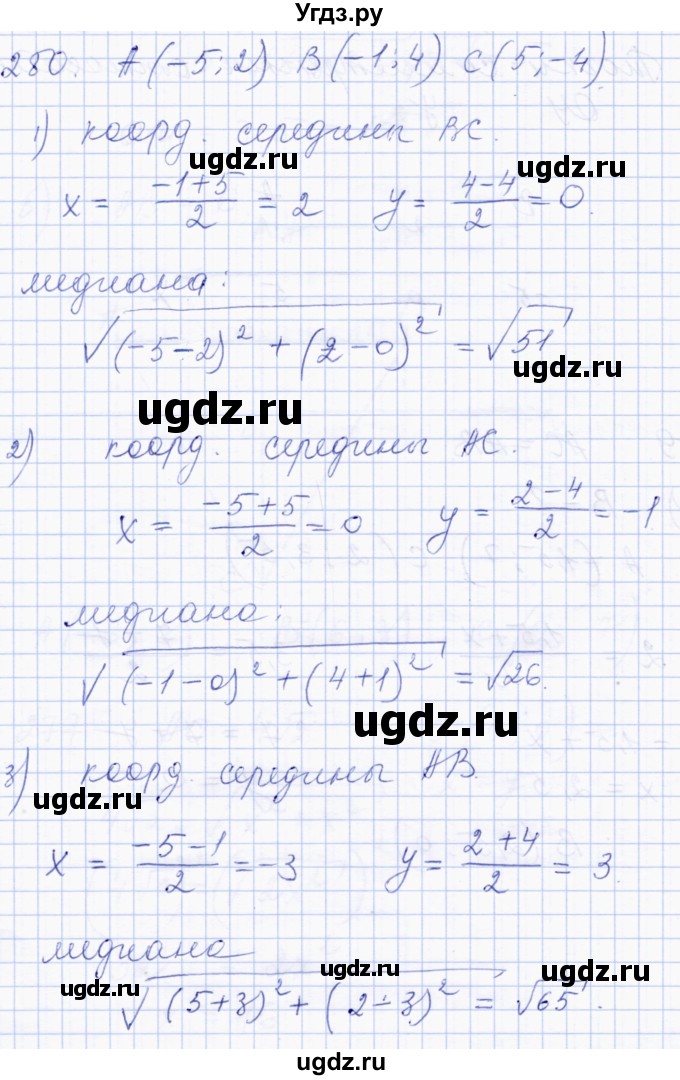 Угдз.ру
280. A(-5; 2) B(-1; 4) C(5; -4).
1) коорд. середины BC.
ugdz.ru ugdz.ru
x = (-1+5)/2 = 2 y = (4-4)/2 = 0.
медиана:
√((-5-2)² + (2-0)²) = √51
ugdz.ru
ugdz.ru
2) коорд. середины AC.
x = (-5+5)/2 = 0 y = (2-4)/2 = -1
медиана:
√((-1-0)² + (4+1)²) = √26.
ugdz.ru
3) коорд. середины AB.
ugdz.ru
x = (-5-1)/2 = -3 y = (2+4)/2 = 3.
медиана
ugdz.ru ugdz.ru ugdz.ru
√((5+3)² + (2-3)²) = √65.
ugdz.ru